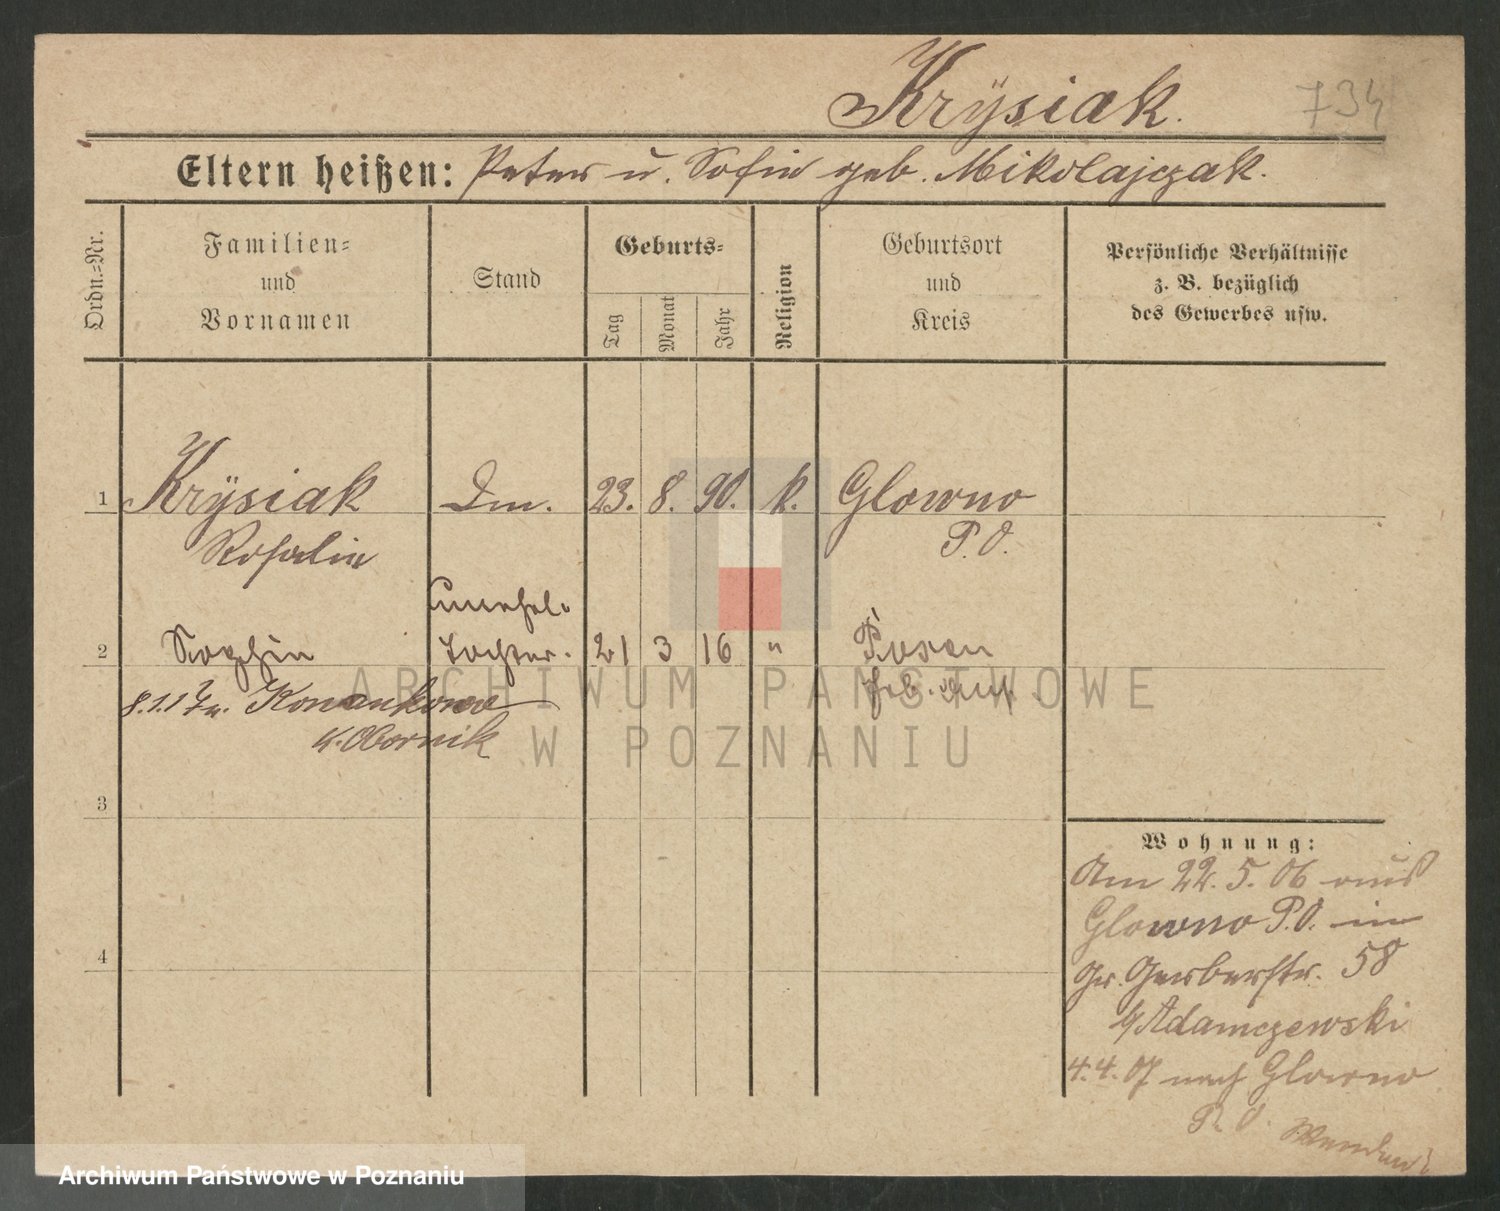 Krÿsiak.
734
Eltern heißen: Peter u. Sofie geb. Mikolajczak.
Ordn.-Nr.
Familien-
und
Vornamen
Stand
Geburts-
Tag
Monat
Jahr
Religion
Geburtsort
und
Kreis
Persönliche Verhältnisse
z. B. bezüglich
des Gewerbes usw.
1 Krÿsiak Dm. 23. 8. 90. k. Glowno
Rosalie P. O.
unehel.
2 Sophie Tochter. 21 3 16 " Posen
8.1.17 n. Konankowo
K. Obornik
ARCHIWUM PAŃSTWOWE
W POZNANIU
3
Wohnung:
Am 22. 5. 06 aus
Glowno P.O. in
4 Gr. Gerberstr. 58
b/Adamczewski
4.4.07 nach Glowno
P. O. Wenden!
Archiwum Państwowe w Poznaniu